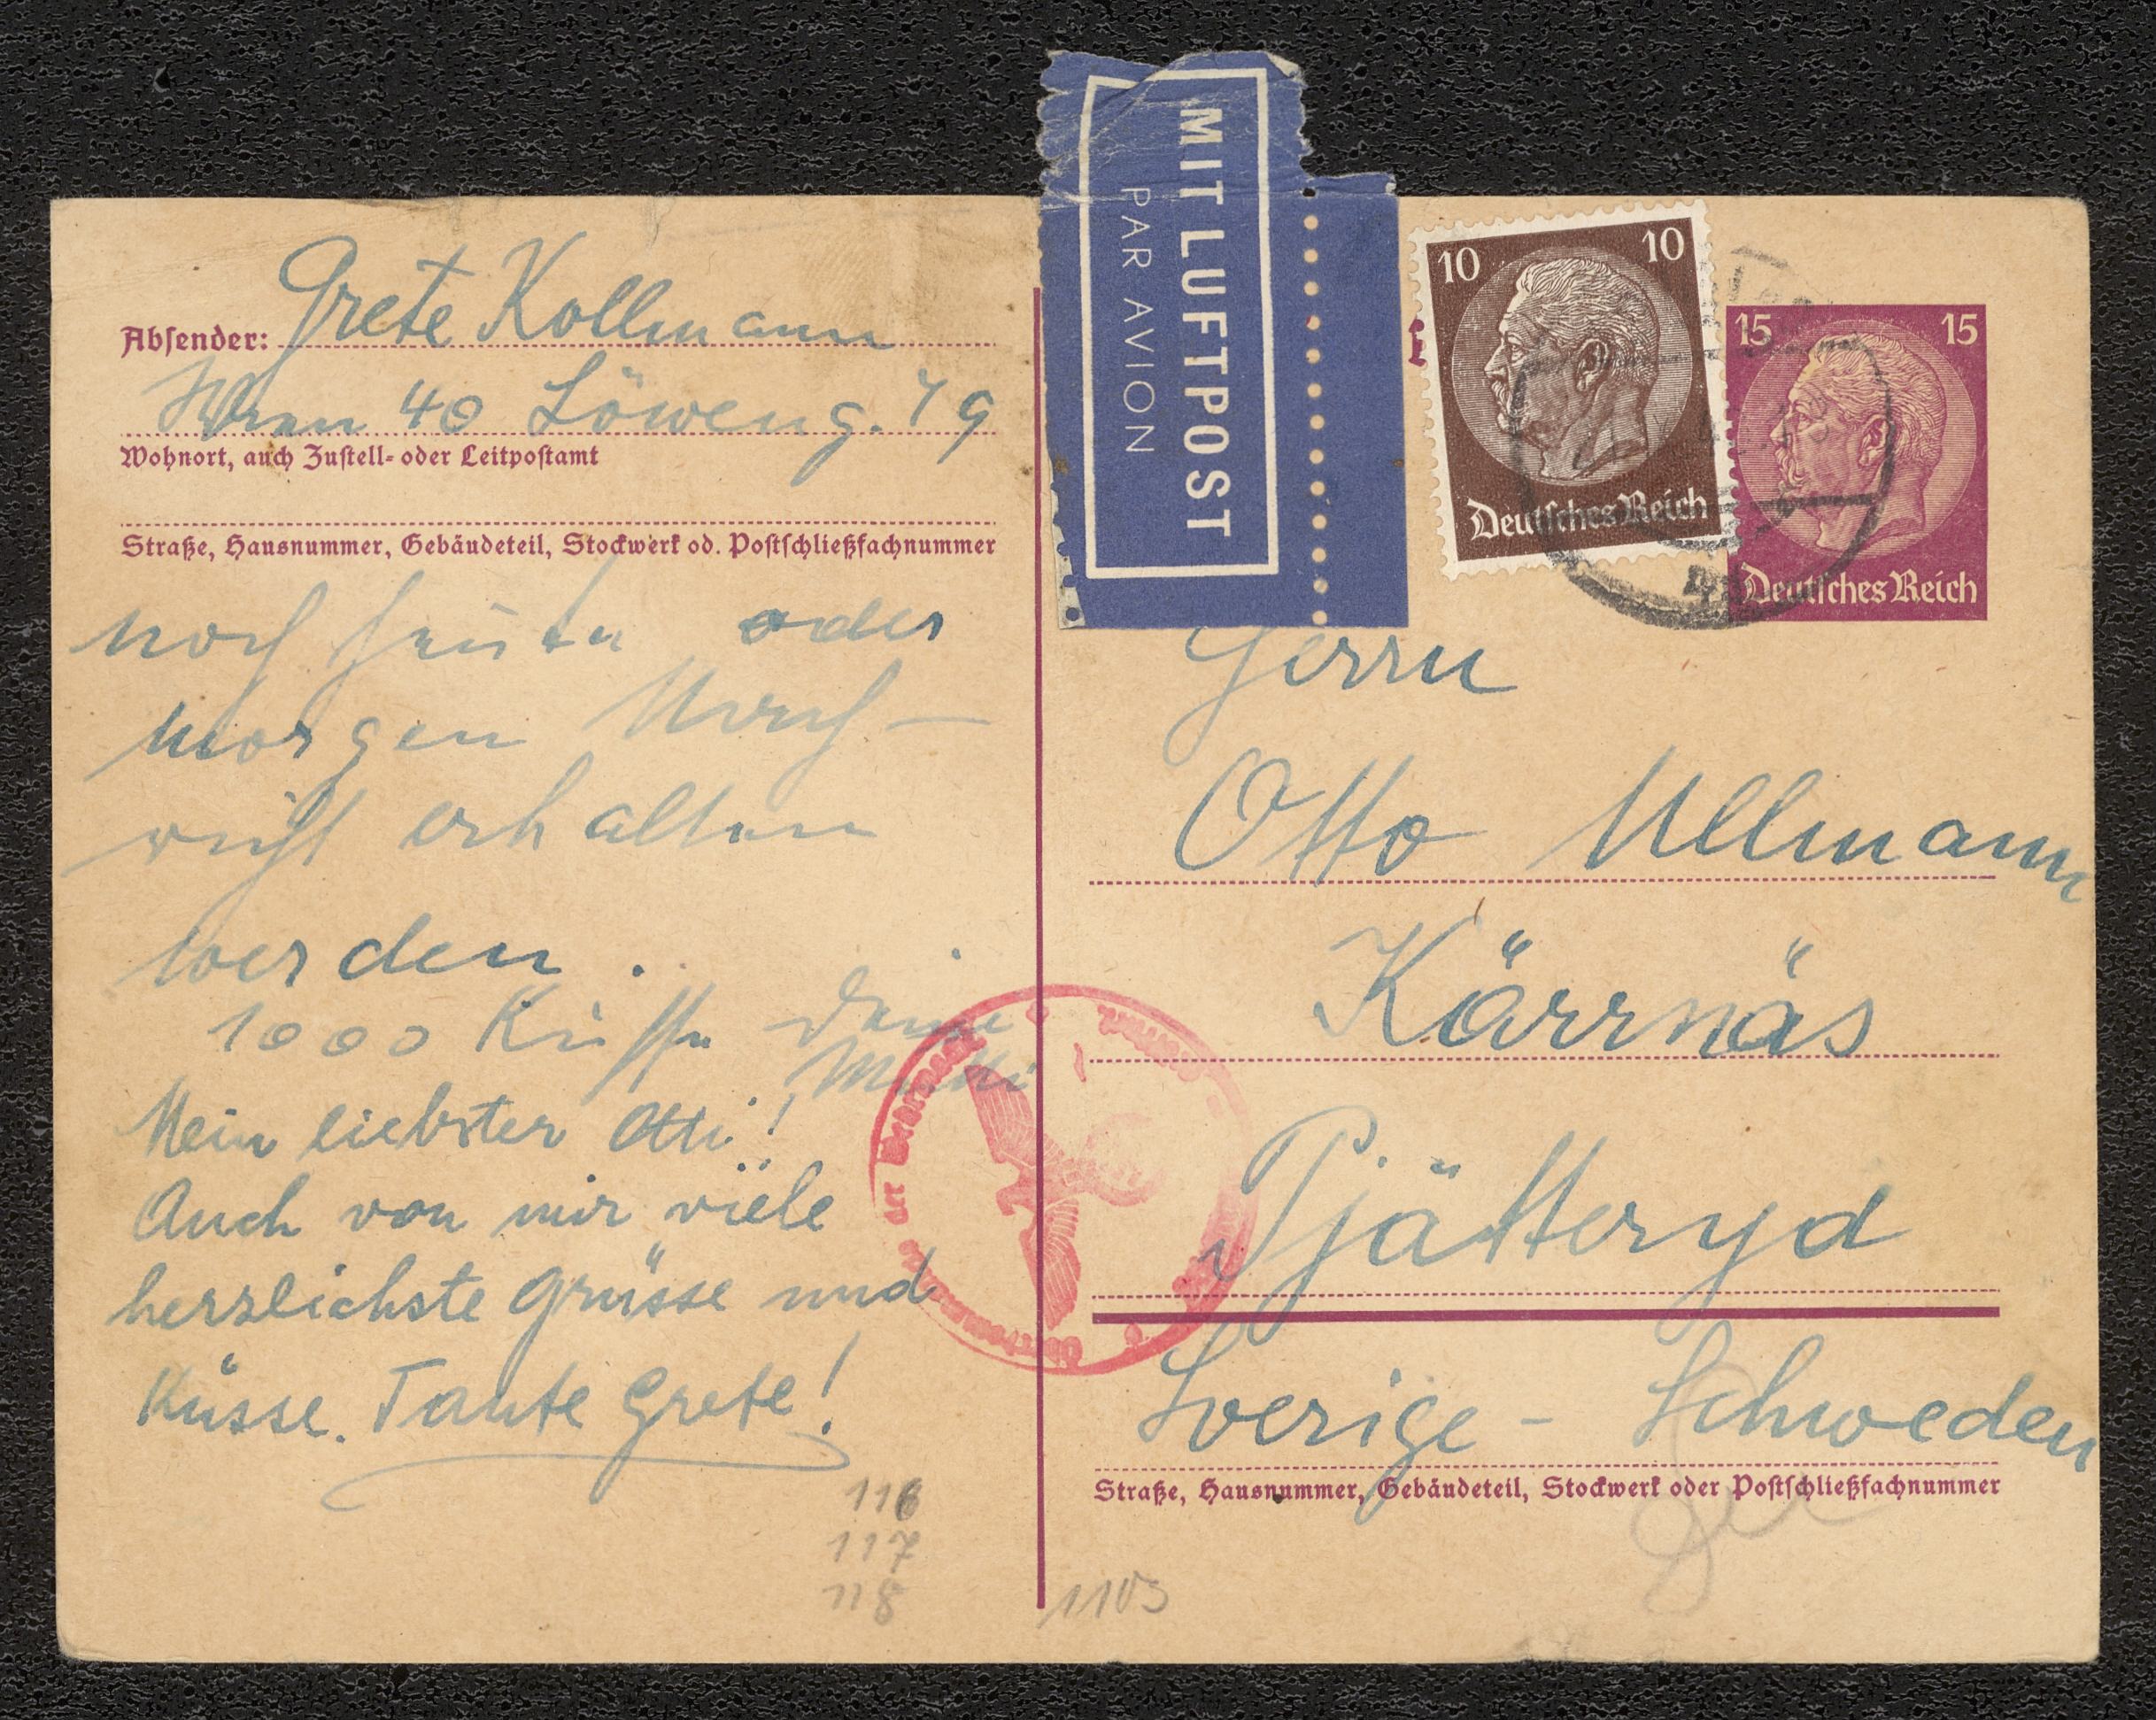 Absender: Grete Kollmann
Wien 40 Löweng. 49
Wohnort, auch Zustell- oder Leitpostamt
Straße, Hausnummer, Gebäudeteil, Stockwerk od. Postschließfachnummer
noch heute oder
morgen Nach-
richt erhalten
werden.
1000 Küsse Deine
Mutti
Mein liebster Otti!
Auch von mir viele
herzlichste Grüsse und
Küsse. Tante Grete!
116
117
118
MIT LUFTPOST
PAR AVION
10 10
Deutsches Reich
15 15
Deutsches Reich
Herrn
Otto Ullmann
Kärrnäs
Pjätteryd
Sverige - Schweden
Straße, Hausnummer, Gebäudeteil, Stockwerk oder Postschließfachnummer
1103
der Wehrmacht